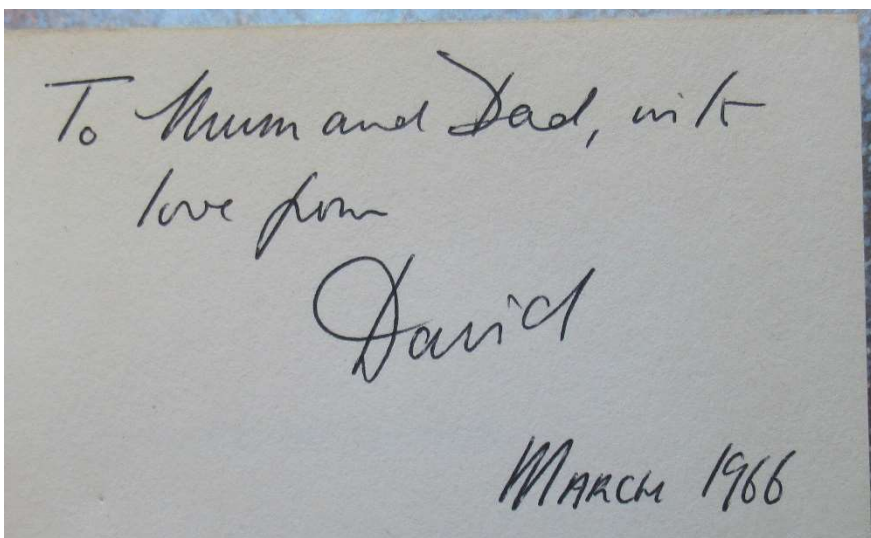 To Mum and Dad, with
love from
David
MARCH 1966